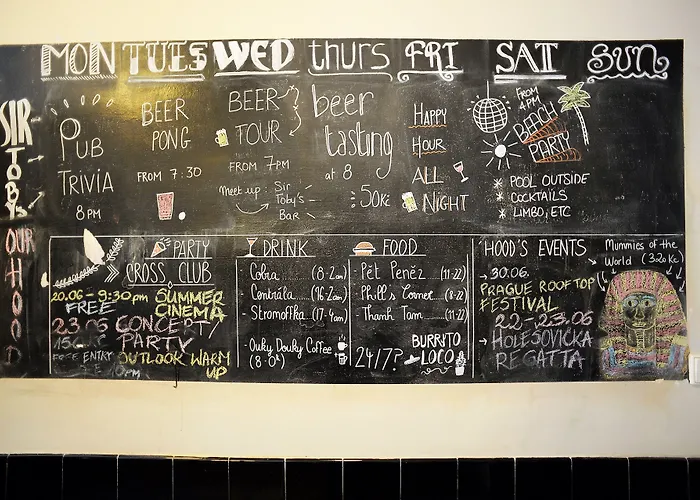 MON TUES WED thurs FRI SAT SUN
SIR
TOBY'S
OUR
HOOD
PUB
TRIVIA
8PM
BEER
PONG
FROM 7:30
BEER
TOUR
FROM 7PM
Meet up: Sir
Toby's
BAR
beer
tasting
at 8
50Kč
HAPPY
HOUR
ALL
NIGHT
FROM
4PM
BEACH
PARTY
* POOL OUTSIDE
* COCKTAILS
* LIMBO, ETC
PARTY
CROSS CLUB
20.06 - 9:30pm SUMMER
FREE CINEMA
23.06 CONCEPT
PARTY
FREE ENTRY OUTLOOK WARM
10PM UP
DRINK
- Cobra (8-2am)
- Centrála (16-2am)
- Stromoffka (17-4am)
- Ouky Douky Coffee
FOOD
- Pět Peněz (11-22)
- Phill's Corner (8-22)
- Thanh Tam (11-22)
24/7? BURRITO
LOCO
HOOD'S EVENTS
→ 30.06.
PRAGUE ROOFTOP
FESTIVAL
22-23.06
→ HOLEŠOVIČKA
REGATTA
Mummies of the
World (320 Kč)